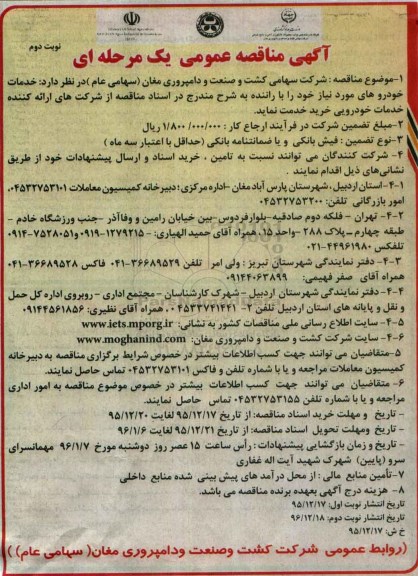 نوبت دوم
آگهی مناقصه عمومی یک مرحله ای
۱-موضوع مناقصه : شرکت سهامی کشت و صنعت و دامپروری مغان (سهامی عام )در نظر دارد: خدمات
خودرو های مورد نیاز خود را با راننده به شرح مندرج در اسناد مناقصه از شرکت های ارائه کننده
خدمات خودرویی خرید خدمت نماید.
۲-مبلغ تضمین شرکت در فرآیند ارجاع کار : ۱/۸۰۰ /۰۰۰/۰۰۰ ریال
۳-نوع تضمین : فیش بانکی و یا ضمانتنامه بانکی (حداقل با اعتبار سه ماه )
۴- شرکت کنندگان می توانند نسبت به تامین ، خرید اسناد و ارسال پیشنهادات خود از طریق
نشانی‌های ذیل اقدام نمایند .
۴-۱-استان اردبیل ،شهرستان پارس آباد مغان -اداره مرکزی؛ دبیرخانه کمیسیون معاملات ۰۴۵۳۲۷۵۳۱۰۱،
امور بازرگانی تلفن: ۰۴۵۳۲۷۵۳۲۰۰
۴-۲- تهران - فلکه دوم صادقیه-بلوارفردوس-بین خیابان رامین و وفاآذر -جنب ورزشگاه خادم -
طبقه چهارم -پلاک ۲۸۸ -واحد ۱۵، همراه آقای حمید الهیاری: ۱۲۷۹۲۱۵-۰۹۱۹و۷۵۲۸۰۵۱-۰۹۱۴
تلفکس ۴۴۹۶۱۹۸۰-۰۲۱
۴-۳- دفتر نمایندگی شهرستان تبریز : ولی امر تلفن ۳۶۶۸۹۵۲۹-۰۴۱ فاکس ۳۶۶۸۹۵۲۸-۰۴۱
همراه آقای صفر فهیمی: ۰۹۱۴۴۰۶۳۸۹۹
۴-۴- دفتر نمایندگی شهرستان اردبیل - شهرک کارشناسان - مجتمع اداری - روبروی اداره کل حمل
و نقل و پایانه های استان اردبیل تلفن ۲- ۰۴۵۳۳۷۴۱۴۴۱ ، همراه آقای نظیری: ۰۹۱۴۴۵۶۱۸۵۶
۴-۵- سایت اطلاع رسانی ملی مناقصات کشور به نشانی: www.iets.mporg.ir
۴-۶- سایت شرکت کشت و صنعت و دامپروری مغان: www.moghanind.com
۵-متقاضیان می توانند جهت کسب اطلاعات بیشتر در خصوص شرایط برگزاری مناقصه به دبیرخانه
کمیسیون معاملات مراجعه و یا با شماره تلفن و فاکس ۰۴۵۳۲۷۵۳۱۰۱ تماس حاصل نمایند.
۶- متقاضیان می توانند جهت کسب اطلاعات بیشتر در خصوص موضوع مناقصه به امور اداری
مراجعه و یا با شماره تلفن ۰۴۵۳۲۷۵۳۱۵۵ تماس حاصل نمایند.
- تاریخ و مهلت خرید اسناد مناقصه: از تاریخ ۹۵/۱۲/۱۷ لغایت ۹۵/۱۲/۲۰
- تاریخ ومهلت تحویل اسناد مناقصه: از تاریخ ۹۵/۱۲/۲۱ لغایت ۹۶/۱/۶
- تاریخ و زمان بازگشایی پیشنهادات : رأس ساعت ۱۵ عصر روز دوشنبه مورخ ۹۶/۱/۷ مهمانسرای
سرو (پایین) شهرک شهید آیت اله غفاری
۷-تأمین منابع مالی : از محل درآمد های پیش بینی شده منابع داخلی
۸- هزینه درج آگهی بعهده برنده مناقصه می باشد.
تاریخ انتشار نوبت اول: ۹۵/۱۲/۱۷
تاریخ انتشار نوبت دوم: ۹۶/۱۲/۱۸
خ ش: ۹۵/۱۲/۱۷
((روابط عمومی شرکت کشت وصنعت ودامپروری مغان( سهامی عام) )